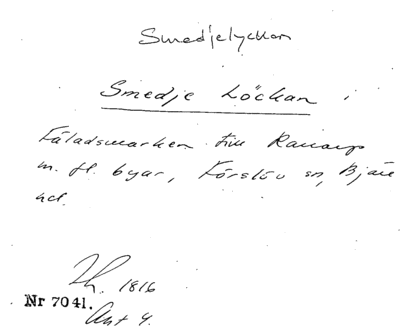 Smedjelyckan
Smedje Löckan i
Fäladsmarken till Ranarp
m. fl. byar, Förslöv sn, Bjäre
hd.
1816
Nr 7041.
Akt 4.